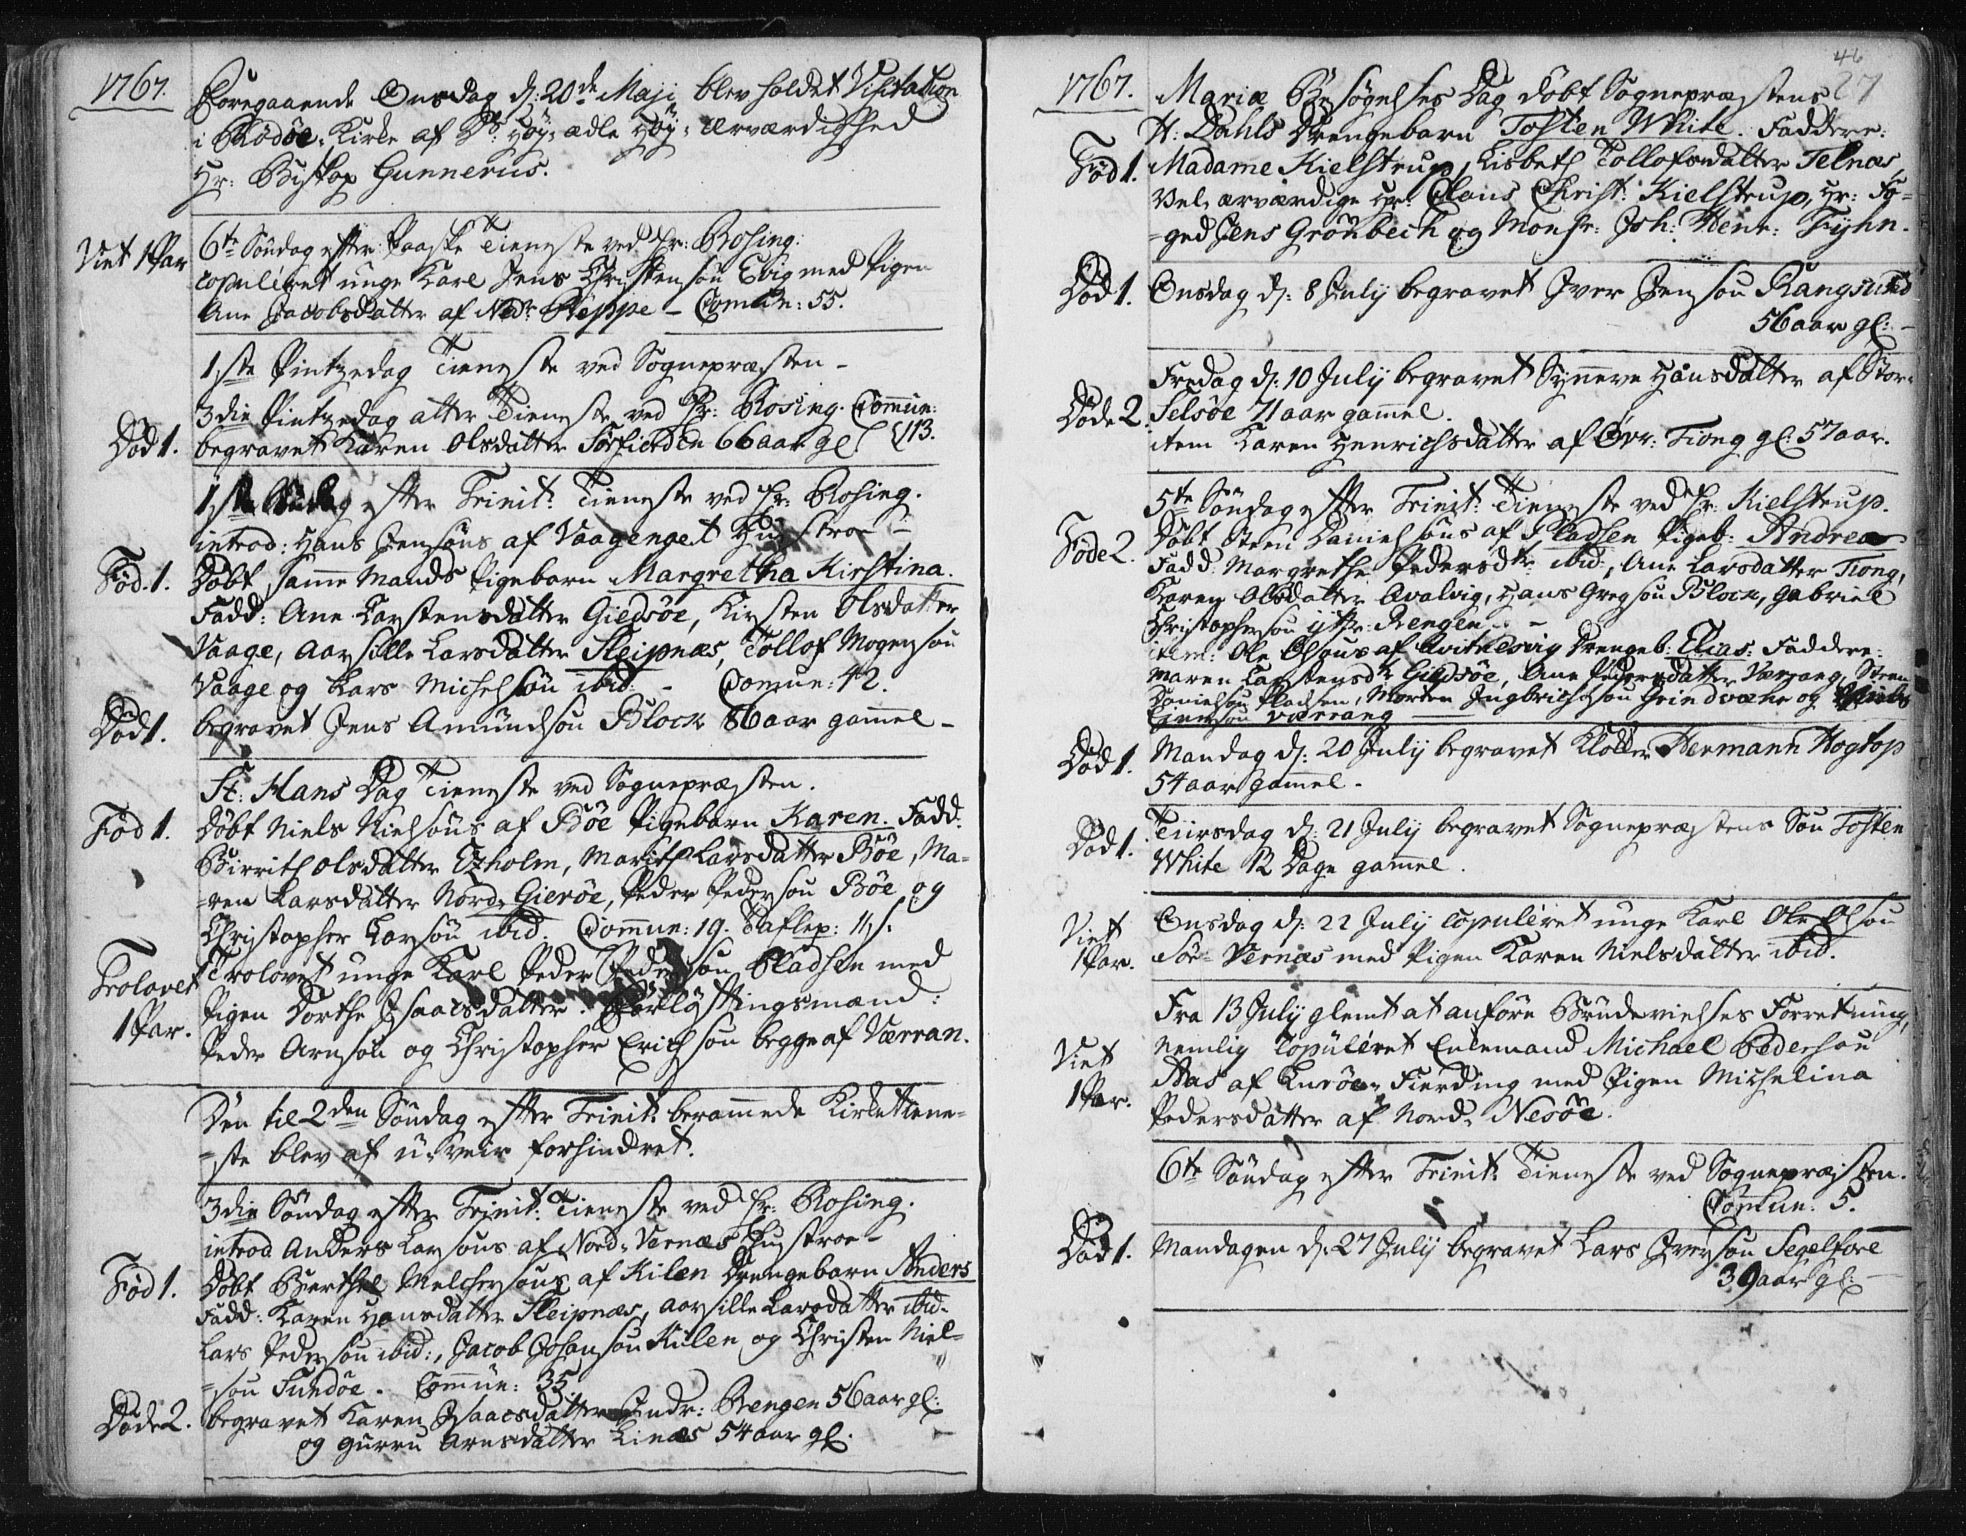 1767.
Foregaaende Onsdag d: 20de Maji blev holdet Visitation
i Rodöe-Kirke af Ds: Höy-ædle Höy-Ærværdighed
Hr: Biskop Gunnerus.
Viet 1 Par
6te Söndag efter Paaske Tieneste ved Hr: Rosing:
copuleret unge Karl Jens Christensön Evig med Pigen
Ane Jacobsdatter af Nedr- Steppe – Comun: 55.
1ste Pintzedag Tieneste ved Sognepræsten –
3die Pintzedag atter Tieneste ved Hr: Rosing. Commun:
Död 1.
begravet Karen Olsdatter Sörfiorden 66 aar gl { 113.
1ste Söndag efter Trinit: Tieneste ved Hr: Rosing.
introd: Hans Jensöns af Vaagenget Hustroe –
Föd. 1.
Döbt samme Mands Pigebarn Margretha Kirstina.
Fadd: Ane Carstensdatter Giersöe, Kirsten Olsdatter
Vaage, Aarsille Larsdatter Sleipnæs, Tollof Mogensön
Vaage og Lars Michelsön ibid: – Comun: 42.
Död 1.
begravet Jens Amundsön Block 86 aar gamel –
St: Hans Dag Tieneste ved Sognepræsten.
Föd 1.
Döbt Niels Nielsöns af Böe Pigebarn Karen. Fadd:
Birrith Olsdatter Exholm, Marith Larsdatter Böe, Ma-
-ren Larsdatter Nord-Gieröe, Peder Pedersön Böe og
Christopher Larsön ibid. Commun: 19. Taflep: 11 s.
Trolovet
1 Par.
Trolovet unge Karl Peder Pedersön Pladsen med
Pigen Dorthe Isaacsdatter. Forlöftingsmænd:
Peder Arnsön og Christopher Erichsön begge af Værran.
Den til 2den Söndag efter Trinit: berammede Kirketiene-
-ste blev af u-veir forhindret.
3die Söndag efter Trinit: Tieneste ved Hr: Rosing.
introd Anders Larsöns af Nord-Vernæs Hustroe –
Föd 1.
Döbt Berthel Melchersöns af Kilen Drengebarn Anders
Fadd: Karen Hansdatter Sleipnæs, Aarsille Larsdatter ibid.
Lars Pedersön ibid:, Jacob Johansön Kilen og Christen Niel-
-sön Sundöe. Commun: 35.
Döde 2.
begravet Karen Isaacsdatter Indr: Rengen 56 aar gl:
og Gurru Arnsdatter Linæs 54 aar gl.
46
27
1767.
Mariæ Besögelses Dag döbt Sognepræstens
Föd 1.
H: Dahls Drengebarn Tosten White. Faddere:
Madame Kielstrup, Lisbeth Tollofsdatter Telnæs,
Vel-ærværdige Hr: Claus Christ: Kielstrup, Hr: Fo-
-ged Jens Grönbech og Monsr: Joh: Henr: Fyhn.
Död 1.
Onsdag d: 8 July begravet Iver Jensön Rangsund
56 aar gl: –
Fredag d: 10 July begravet Synneve Hansdatter af Stor-
Döde 2.
Selsöe 71 aar gammel.
item Karen Henrichsdatter af Övr: Tiong gl: 57 aar.
5te Söndag efter Trinit: Tieneste ved Hr: Kielstrup.
Föde 2.
Döbt Steen Danielsöns af Pladsen Pigeb: Andrea
Fadd: Margrethe Pedersdtr: ibid:, Ane Larsdatter Tiong,
Karen Olsdatter Qvalvig, Hans Gregsön Block, Gabriel
Christophersön ytr: Rengen –
item: Ole Olsöns af Qvitnesvig Drengeb: Elias: Faddere:
Maren Carstensdtr Giersöe, Ane Pedersdatter Værrang, Steen
Danielsön Pladsen, Morten Ingbrichtsön Grindværne og
Værrang
Död 1.
Mandag d: 20 July begravet Klokker Hermann Hogtop
54 aar gamel –
Död 1.
Tiirsdag d: 21 July begravet Sognepræstens Sön Tosten
White 12 Dage gamel.
Viet
1 Par.
Onsdag d: 22 July copuleret unge Karl Ole Olsön
Sör-Vernæs med Pigen Karen Nielsdatter ibid.
Viet
1 Par.
Fra 13 July glemt at anföre Brudevielses Forretning,
nemlig copuleret Enkemand Michael Pedersön
Aas af Luröe-Fierding med Pigen Michelina
Pedersdatter af Nord-Nesöe.
6te Söndag efter Trinit: Tieneste ved Sognepræsten.
Comun: 5.
Död 1.
Mandagen d: 27 July begravet Lars Iversön Segelfore
39 aar gl: –